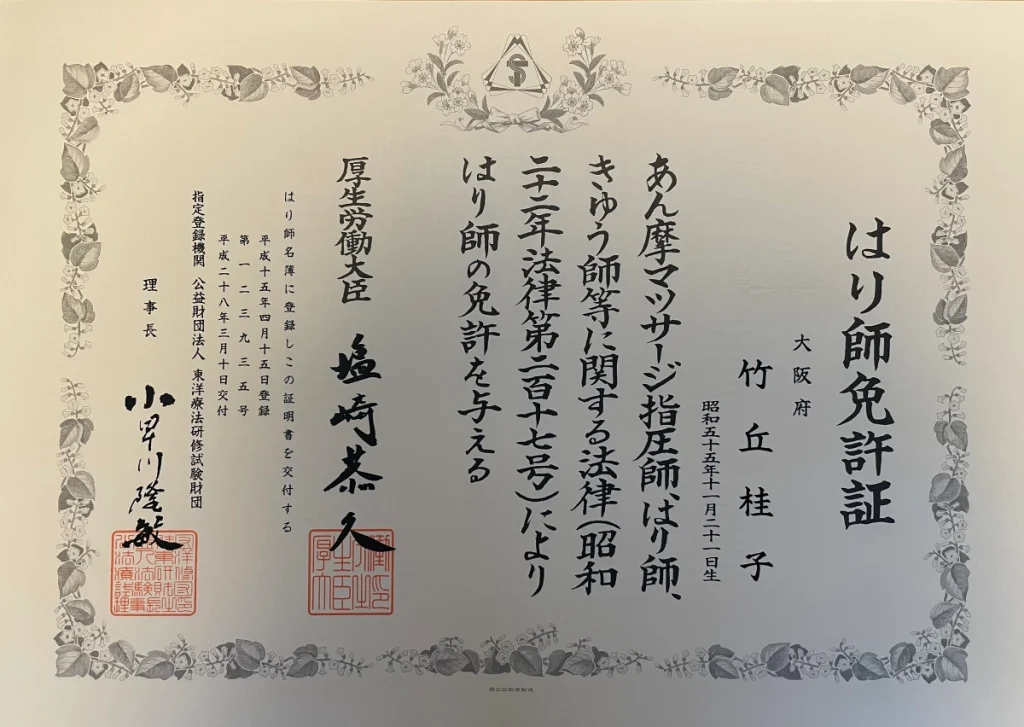 はり師免許証
大阪府
竹丘桂子
昭和五十五年十一月二十一日生
あん摩マツサージ指圧師、はり師、
きゆう師等に関する法律(昭和
二十二年法律第二百十七号)により
はり師の免許を与える
厚生労働大臣 塩崎恭久
はり師名簿に登録しこの証明書を交付する
平成十五年四月十五日登録
第一二三九三五号
平成二十八年三月十日交付
指定登録機関 公益財団法人 東洋療法研修試験財団
理事長 小早川隆敏